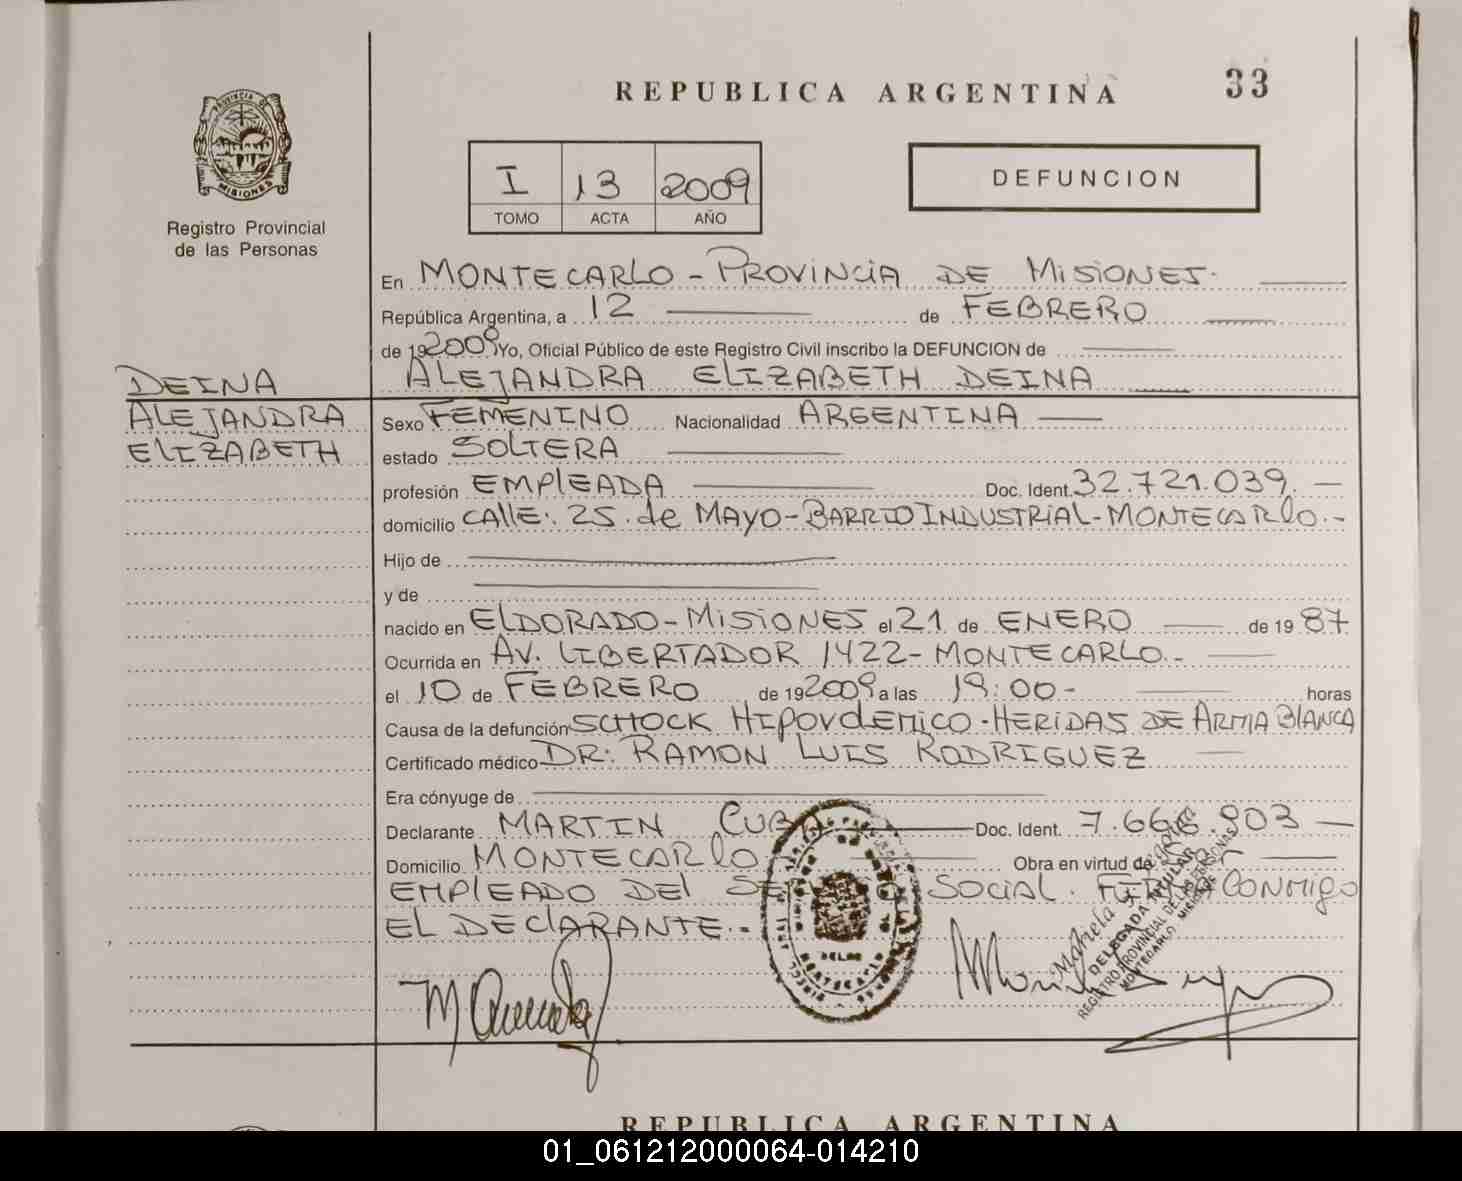 REPUBLICA ARGENTINA 33
PROVINCIA DE MISIONES
Registro Provincial
de las Personas
I 13 2009
TOMO ACTA AÑO
DEFUNCION
En MONTECARLO - PROVINCIA DE MISIONES.
República Argentina, a 12 de FEBRERO
de 19 2009 Yo, Oficial Público de este Registro Civil inscribo la DEFUNCION de
ALEJANDRA ELIZABETH DEINA
DEINA
ALEJANDRA
ELIZABETH
Sexo FEMENINO Nacionalidad ARGENTINA
estado SOLTERA
profesión EMPLEADA Doc. Ident. 32.721.039.
domicilio CALLE: 25 de MAYO - BARRIO INDUSTRIAL - MONTECARLO.-
Hijo de
y de
nacido en ELDORADO - MISIONES el 21 de ENERO de 19 87
Ocurrida en AV. LIBERTADOR 1422 - MONTECARLO.-
el 10 de FEBRERO de 19 2009 a las 19:00 - horas
Causa de la defunción SCHOCK HIPOVOLEMICO - HERIDAS DE ARMA BLANCA
Certificado médico DR: RAMON LUIS RODRIGUEZ
Era cónyuge de
Declarante MARTIN Doc. Ident.
Domicilio MONTECARLO Obra en virtud de
EMPLEADO DEL SOCIAL. CONMIGO
EL DECLARANTE.-
DELEGADA TITULAR
REGISTRO PROVINCIAL DE LAS PERSONAS
MONTECARLO MISIONES
REPUBLICA ARGENTINA
01_061212000064-014210